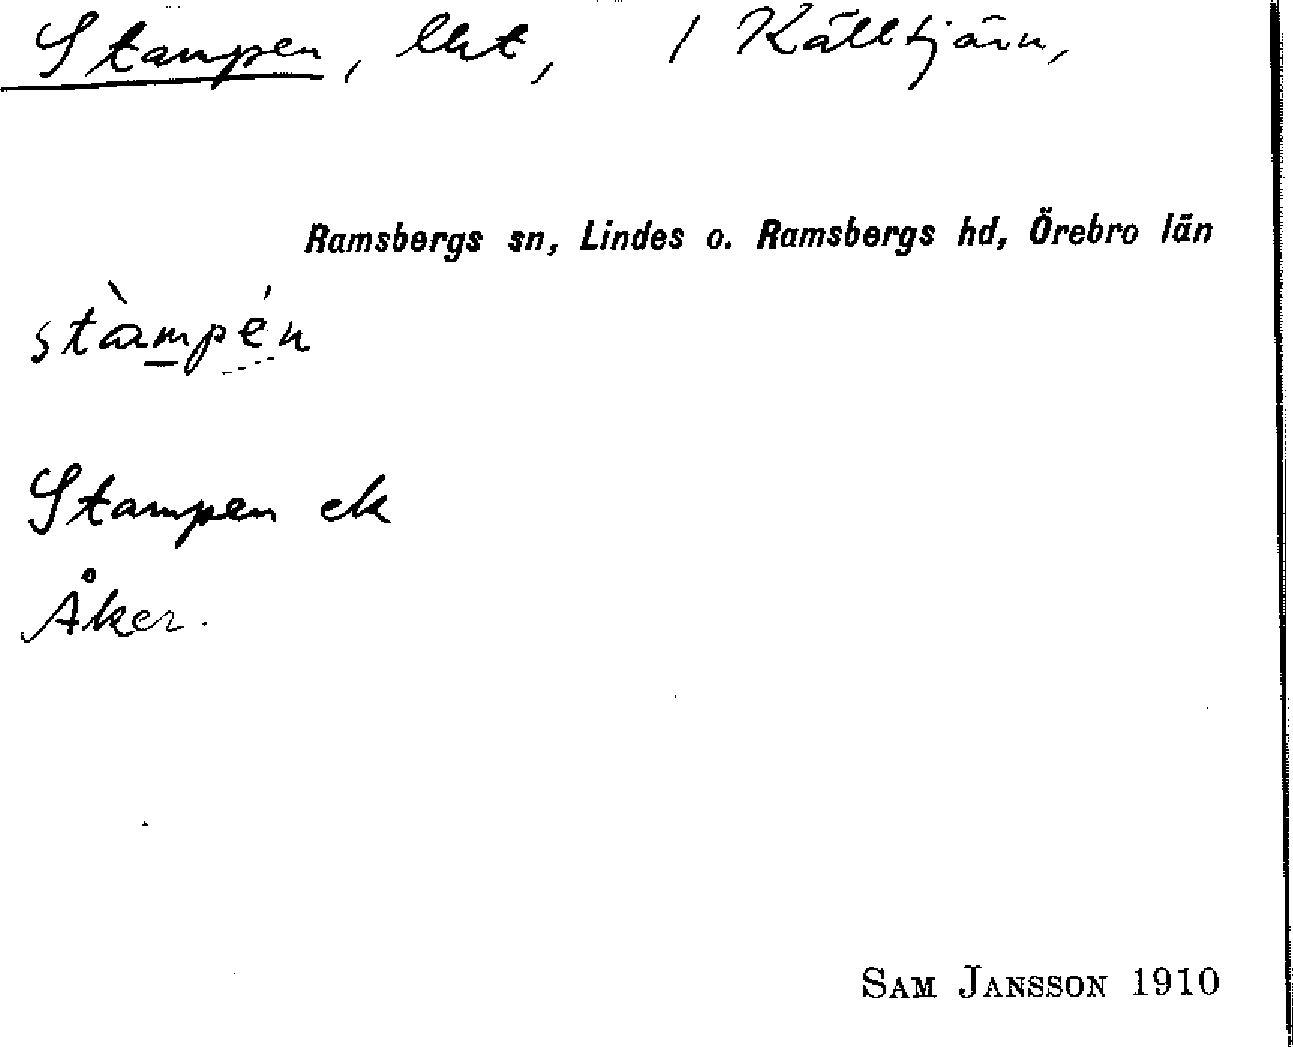 Stampen, lht, / Källtjärn,
Ramsbergs sn, Lindes o. Ramsbergs hd, Örebro län
stàmpén
Stampen ek
Åker.
SAM JANSSON 1910